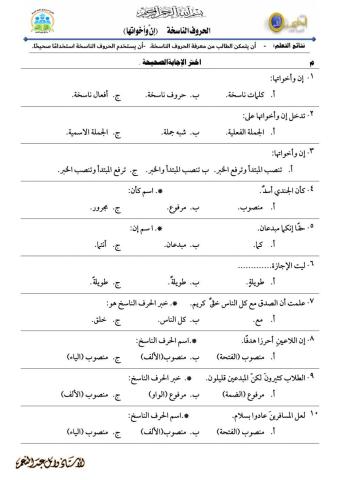 بسم الله الرحمن الرحيم
الحروف الناسخة (إنّ وأخواتها)
نتائج التعلم: - أن يتمكن الطالب من معرفة الحروف الناسخة. -أن يستخدم الحروف الناسخة استخدامًا صحيحًا.
م اختر الإجابة الصحيحة
١. إن وأخواتها:
أ. كلمات ناسخة. ب. حروف ناسخة. ج. أفعال ناسخة.
٢. تدخل إن وأخواتها على:
أ. الجملة الفعلية. ب. شبه جملة. ج. الجملة الاسمية.
٣. إن وأخواتها:
أ. تنصب المبتدأ وترفع الخبر. ب تنصب المبتدأ والخبر. ج. ترفع المبتدأ وتنصب الخبر.
٤. كأن الجندي أسدٌ. * اسم كأن:
أ. منصوب. ب. مرفوع. ج. مجرور.
٥. حقًا إنكما مبدعان. * اسم إن:
أ. كما. ب. مبدعان. ج. أنتما.
٦. ليت الإجازة.............
أ. طويلةٍ. ب. طويلةٌ. ج. طويلةً.
٧. علمت أن الصدق مع كل الناس خلقٌ كريم. * خبر الحرف الناسخ هو:
أ. مع. ب. كل الناس. ج. خلق.
٨. إن اللاعبين أحرزا هدفًا. * اسم الحرف الناسخ:
أ. منصوب (الفتحة) ب. منصوب(الألف) ج. منصوب (الياء)
٩. الطلاب كثيرون لكنّ المبدعين قليلون. * خبر الحرف الناسخ:
أ. مرفوع (الضمة) ب. مرفوع (الواو) ج. مرفوع (الألف)
١٠. لعل المسافرين عادوا بسلام. *اسم الحرف الناسخ:
أ. منصوب (الفتحة) ب. منصوب(الألف) ج. منصوب (الياء)